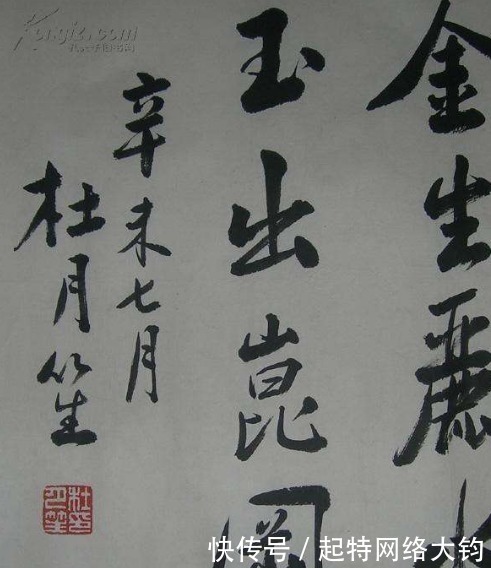 金生麗水
玉出崑岡
辛未七月
杜月笙
杜月笙印
Kongfz.com
快传号/起特网络大钧